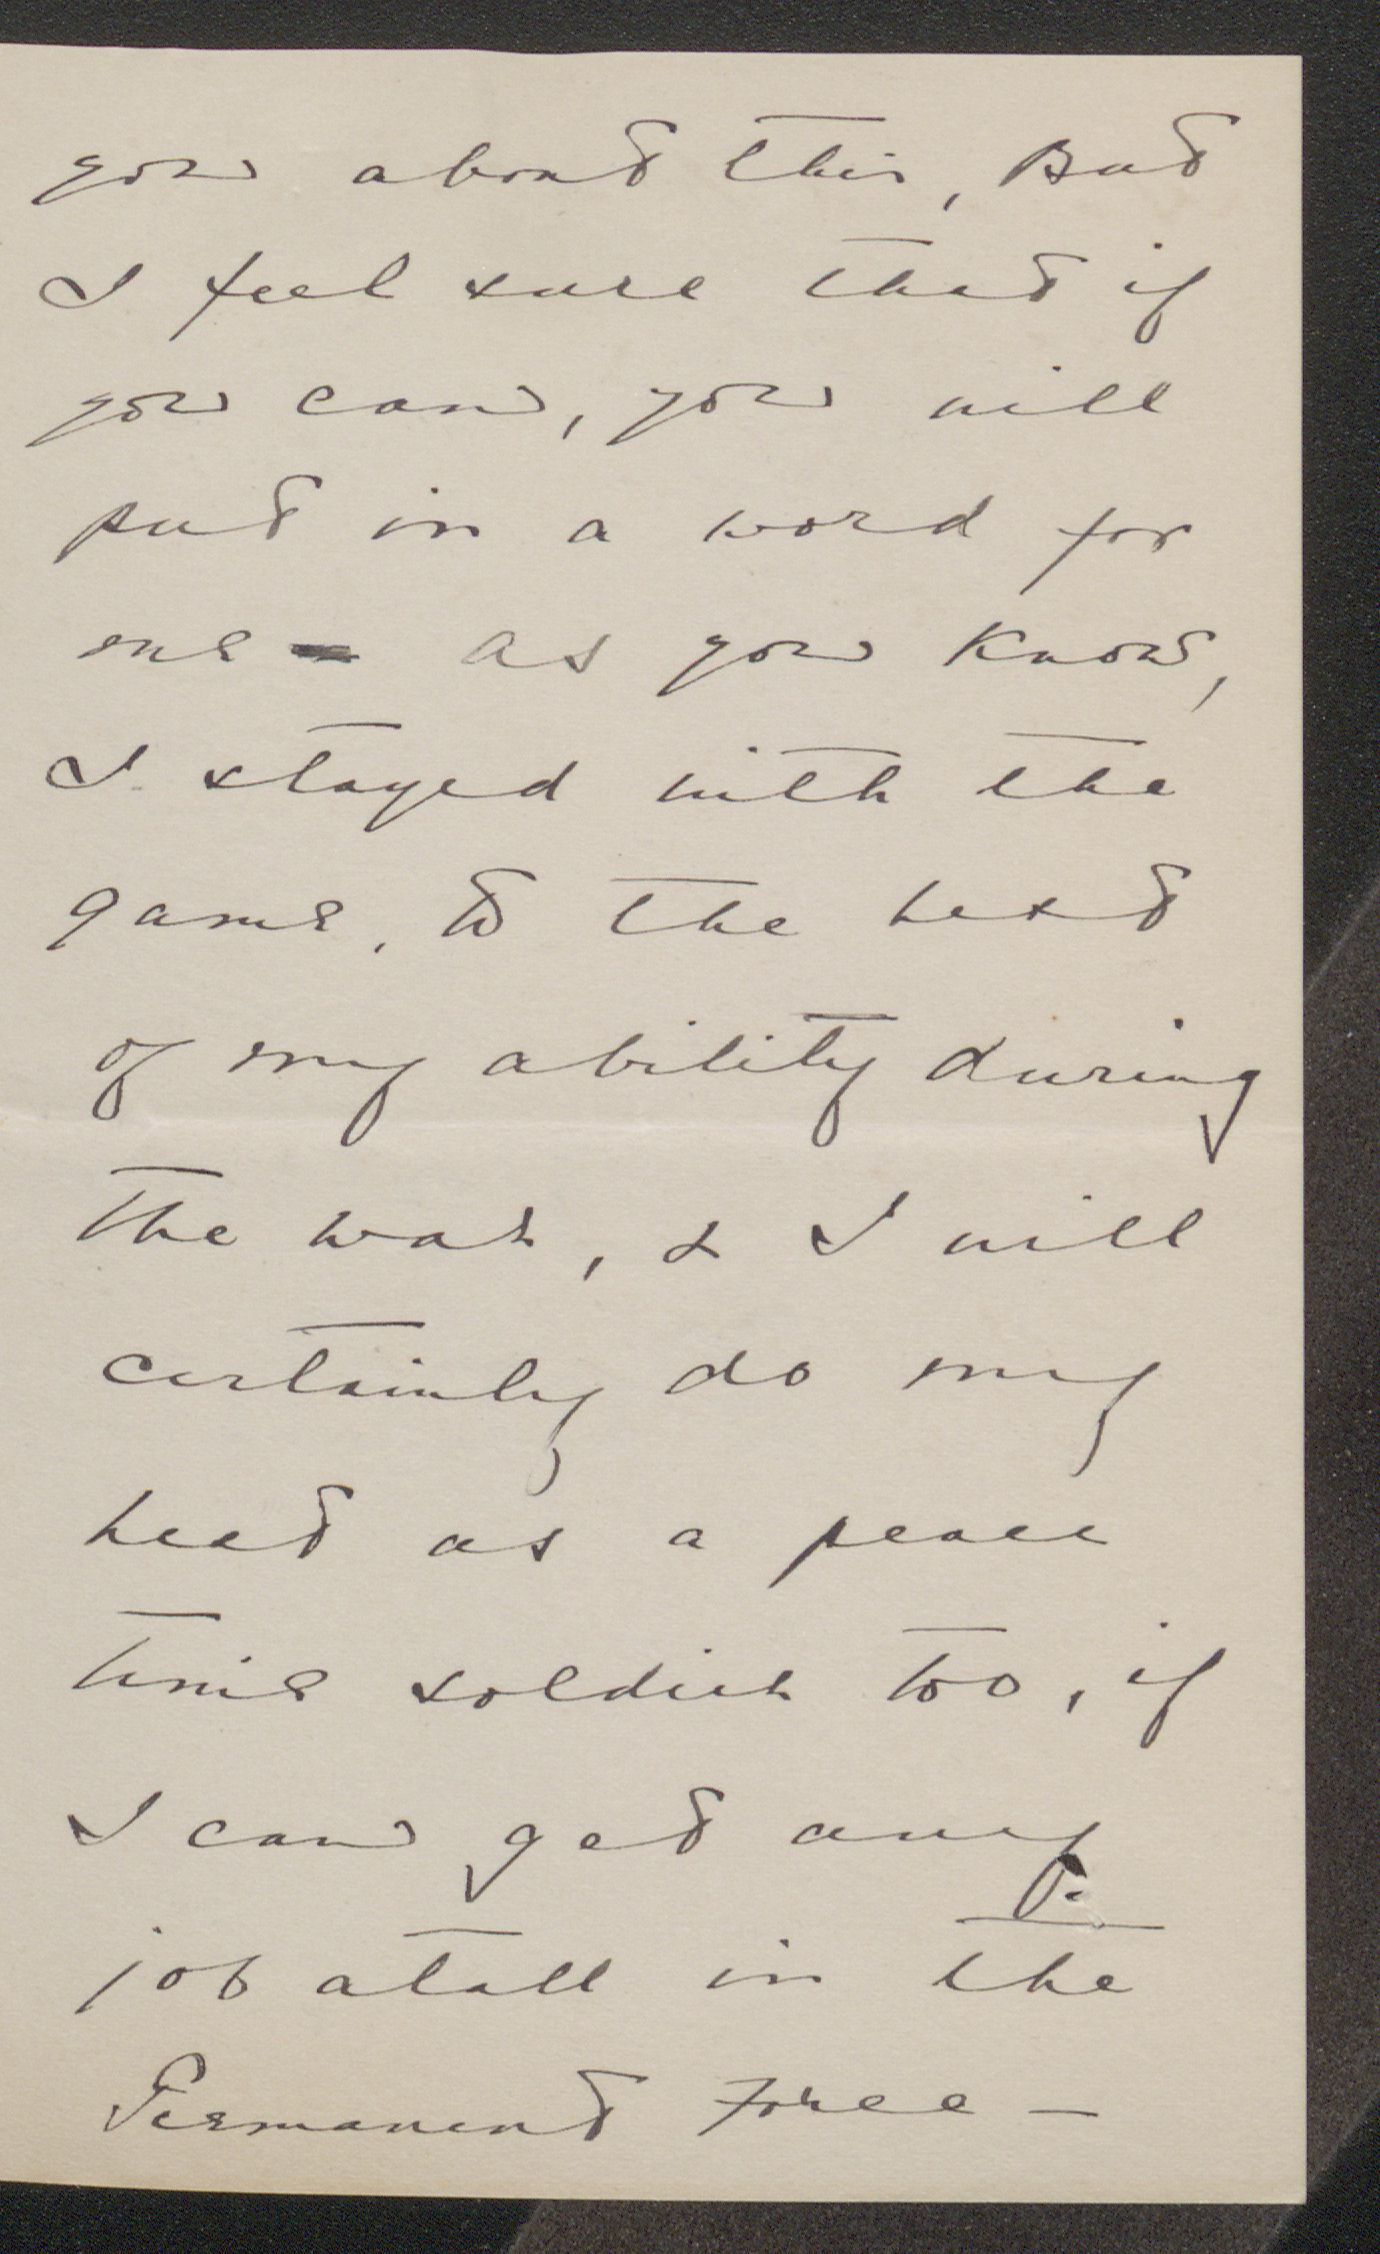 you about this, But
I feel sure that if
you can, you will
put in a word for
me - as you know,
I stayed with the
game, to the best
of my ability during
the war, & I will
certainly do my
best as a peace
time soldier too, if
I can get any
job atall in the
Permanent Force -